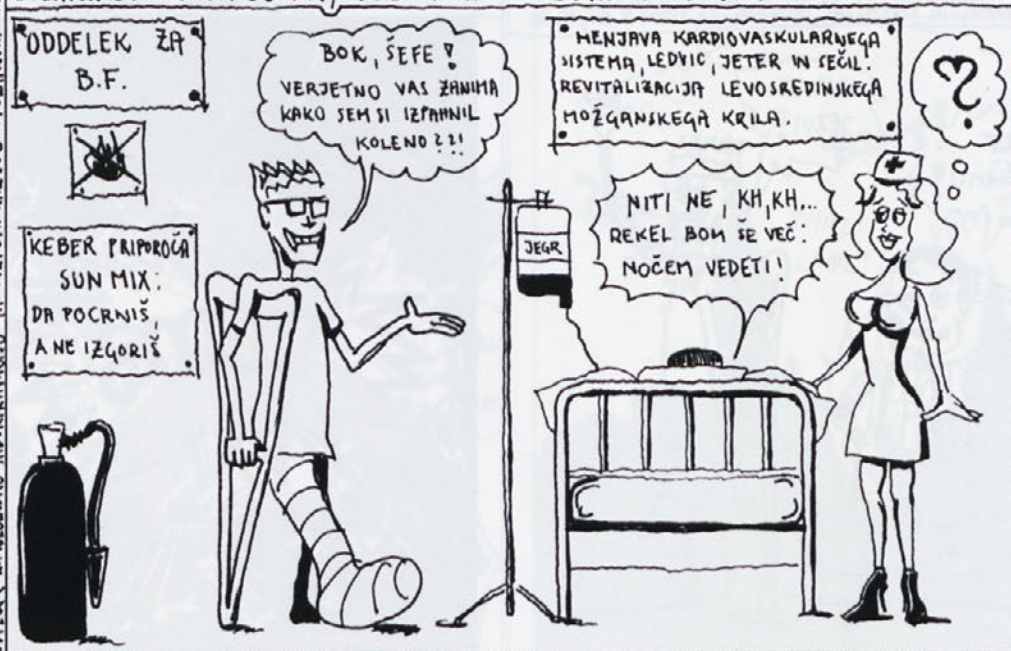 ODDELEK ZA
B.F.
KEBER PRIPOROČA
SUN MIX:
DA POCRNIŠ,
A NE IZGORIŠ
BOK, ŠEFE!
VERJETNO VAS ZANIMA
KAKO SEM SI IZPAHNIL
KOLENO??!!
MENJAVA KARDIOVASKULARNEGA
SISTEMA, LEDVIC, JETER IN SEČIL!
REVITALIZACIJA LEVOSREDINSKEGA
MOŽGANSKEGA KRILA.
?
JEGR
NITI NE, KH, KH,...
REKEL BOM ŠE VEČ:
NOČEM VEDETI!